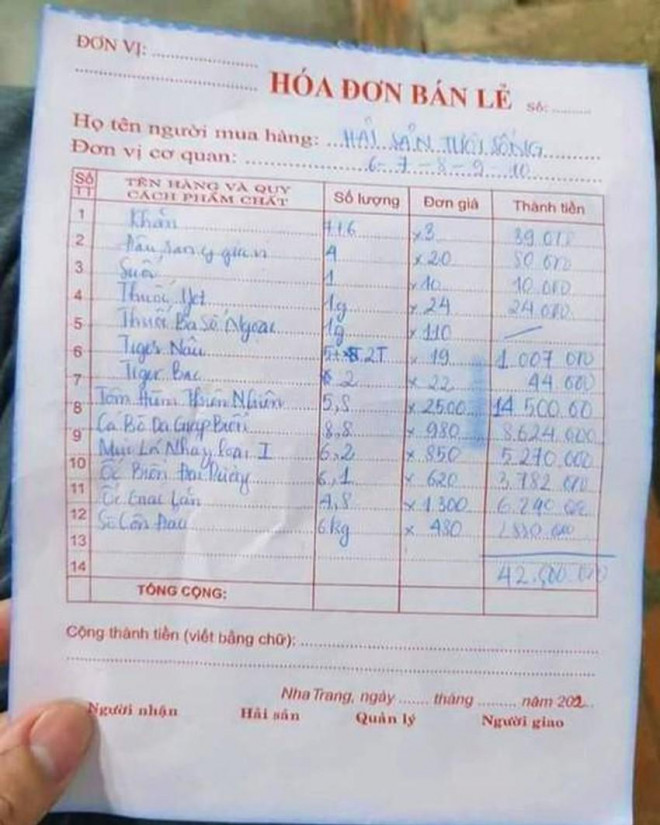 ĐƠN VỊ: ....................
....................
HÓA ĐƠN BÁN LẺ Số: ..........
Họ tên người mua hàng: HẢI SẢN TƯƠI SỐNG
Đơn vị cơ quan: 6-7-8-9-10
Số TT TÊN HÀNG VÀ QUY CÁCH PHẨM CHẤT Số lượng Đơn giá Thành tiền
1 Khăn x3
2 4 x20
3 Suối 1 x10 10.000
4 Thuốc 1g x24 24.000
5 Thuốc Ba Số Ngoại 1g x110
6 Tiger Nâu 2T x 19 1.007 000
7 Tiger Bạc 2 x 22 44.000
8 Tôm Hùm Thiên Nhiên 5,8 x 2500 14 500.00
9 Cá Bò Da Giáp Biển 8,8 x 980 8.624.000
Mực Lá Nháy loại I 6,2 x 850 5.270.000
10 Ốc Biển 6,1 x 620 3.782 000
11 Ốc 4,8 x 1300
12 6kg x 480
13
14 000
TỔNG CỘNG:
Cộng thành tiền (viết bằng chữ): ....................
....................
Nha Trang, ngày ....... tháng ......... năm 202...
Người nhận Hải sản Quản lý Người giao